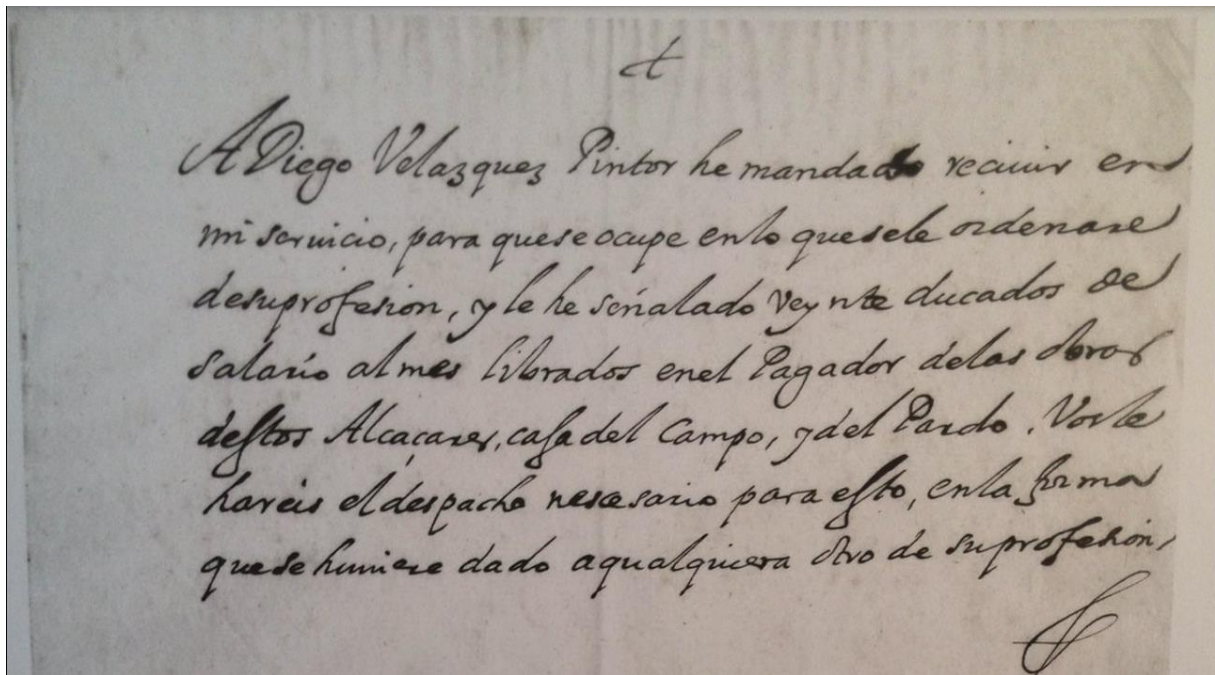 A Diego Velazquez Pintor he mandado reciuir en
mi seruicio, para que se ocupe en lo que se le ordenare
de su profesion, y le he señalado Veynte ducados de
salario al mes librados en el Pagador de las obras
destos Alcaçares, casa del Campo, y del Pardo. Vos le
hareis el despacho nescesario para esto, en la forma
que se huuiere dado a qualquiera otro de su profesion,